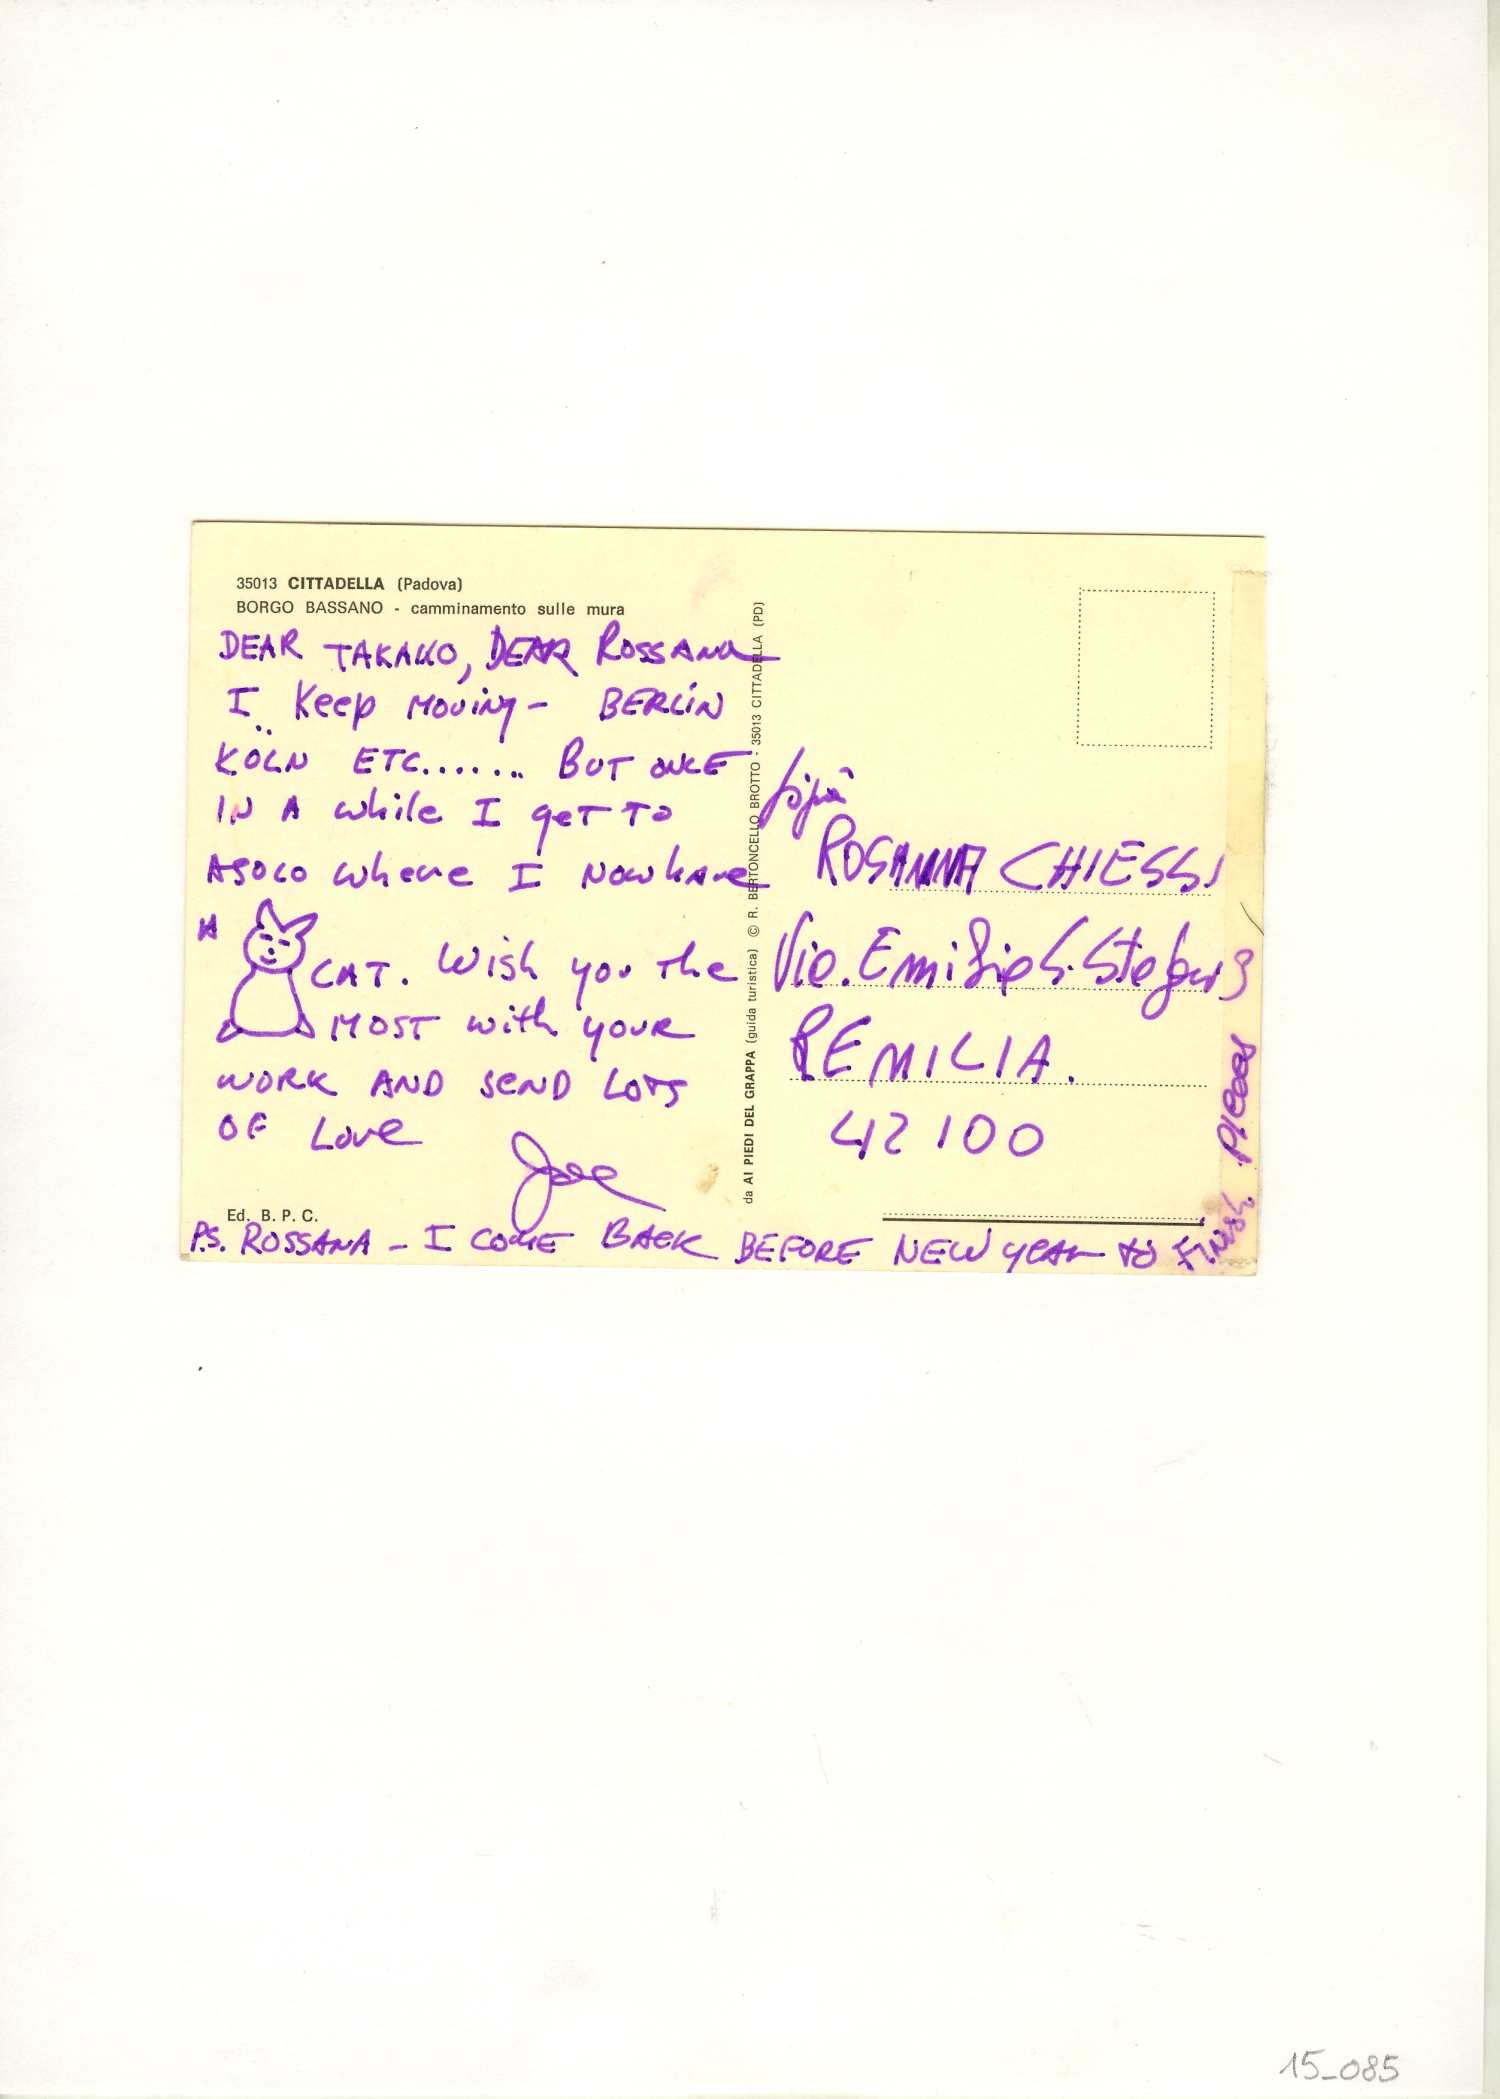 35013 CITTADELLA (Padova)
BORGO BASSANO - camminamento sulle mura
DEAR TAKAKO, DEAR ROSSANA
I Keep MOVING - BERLIN
KÖLN ETC....... BUT ONCE
IN A while I get TO
ASOLO where I NOW have
A
CAT. Wish you The
MOST with your
WORK AND SEND LOTS
OF Love
Joe
Ed. B. P. C.
P.S. ROSSANA - I COME BACK BEFORE NEW YEAR to FINISH Pieces
da AI PIEDI DEL GRAPPA (guida turistica) © R. BERTONCELLO BROTTO - 35013 CITTADELLA (PD)
ROSANNA CHIESSI
Via. Emilia S. Stefano 3
R EMILIA.
42100
15_085